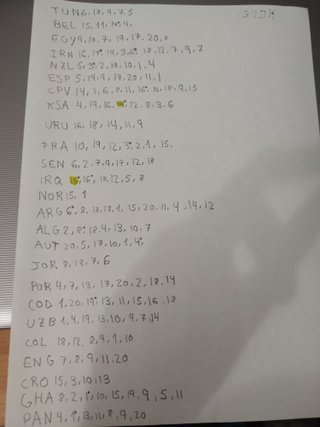 TUN 6, 12, 9, 7, 5
BEL 15, 11, 19, 4,
EGY 9, 10, 7, 19, 17, 20, 8
IRN 16, 19, 19, 3, 6, 18, 12, 7, 9, 2
NZL 5, 3, 2, 18, 10, 1, 4
ESP 5, 19, 9, 17, 20, 11, 1
CPV 14, 1, 6, 8, 11, 16, 10, 18, 9, 15
KSA 4, 19, 16, 12, 8, 3, 6
URU 16, 18, 14, 11, 9
FRA 10, 19, 12, 3, 2, 1, 15,
SEN 6, 2, 7, 9, 17, 12, 18
IRQ 15, 16, 17, 12, 5, 8
NOR 15, 1
ARG 6, 8, 18, 17, 1, 15, 20, 11, 4, 14, 12
ALG 2, 8, 18, 4, 13, 10, 7
AUT 20, 5, 17, 10, 1, 4
JOR 8, 18, 7, 6
POR 4, 7, 13, 17, 20, 2, 18, 14
COD 1, 20, 19, 13, 11, 15, 16, 18
UZB 1, 4, 19, 13, 10, 9, 7, 14
COL 18, 12, 8, 9, 1, 10
ENG 7, 8, 9, 11, 20
CRO 15, 3, 10, 13
GHA 8, 2, 1, 10, 15, 19, 9, 5, 11
PAN 4, 1, 13, 11, 8, 9, 20